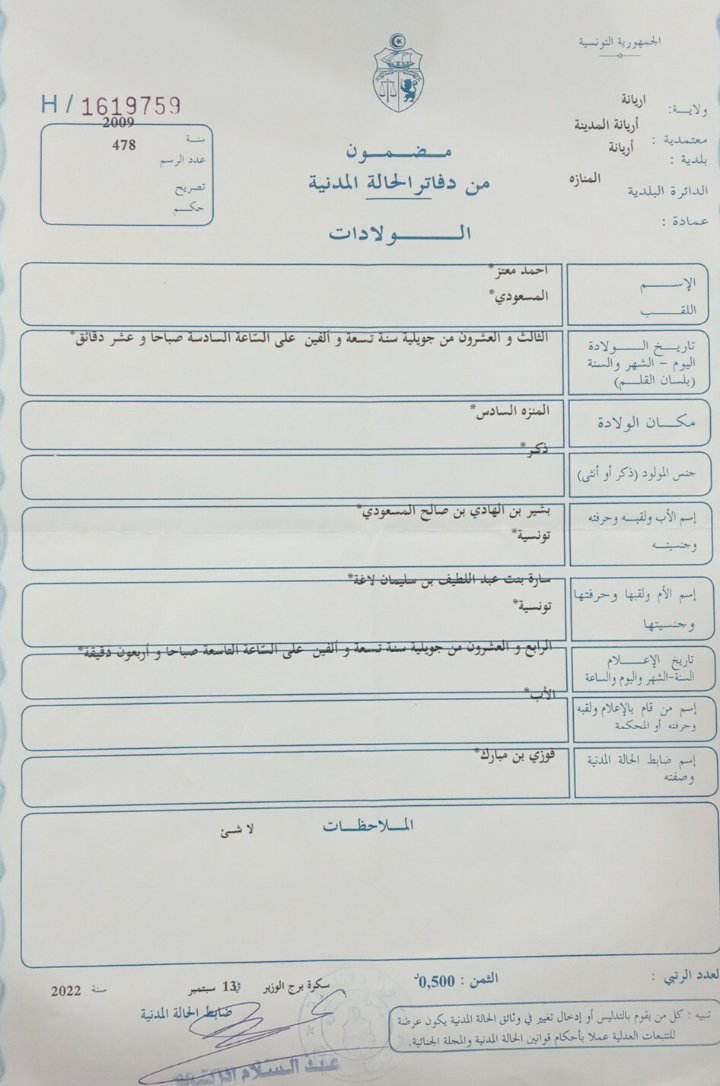 الجمهورية التونسية
ولاية: اريانة
معتمدية : أريانة المدينة
بلدية : أريانة
الدائرة البلدية المنازه
عمادة :
H / 1619759
سنة 2009
عدد الرسم 478
تصريح
حكم
مضمون
من دفاتر الحالة المدنية
الولادات
الإسم احمد معتز*
اللقب المسعودي*
تاريخ الولادة الثالث و العشرون من جويلية سنة تسعة و ألفين على السّاعة السادسة صباحا و عشر دقائق*
اليوم - الشهر والسنة
(بلسان القلم)
مكان الولادة المنزه السادس*
جنس المولود (ذكر أو أنثى) ذكر*
إسم الأب ولقبه وحرفته بشير بن الهادي بن صالح المسعودي*
وجنسيته تونسية*
إسم الأم ولقبها وحرفتها سارة بنت عبد اللطيف بن سليمان لاغة*
وجنسيتها تونسية*
تاريخ الإعلام الرابع و العشرون من جويلية سنة تسعة و ألفين على السّاعة التاسعة صباحا و أربعون دقيقة*
السنة-الشهر واليوم والساعة
إسم من قام بالإعلام ولقبه الأب*
وحرفته أو المحكمة
إسم ضابط الحالة المدنية فوزي بن مبارك*
وصفته
الملاحظات
لا شئ
لعدد الرتبي :
الثمن : 0,500د
سكرة برج الوزير في 13 سبتمبر سنة 2022
ضابط الحالة المدنية
تنبيه : كل من يقوم بالتدليس أو إدخال تغيير في وثائق الحالة المدنية يكون عرضة
للتتبعات العدلية عملا بأحكام قوانين الحالة المدنية والمجلة الجنائية.
عبد السلام